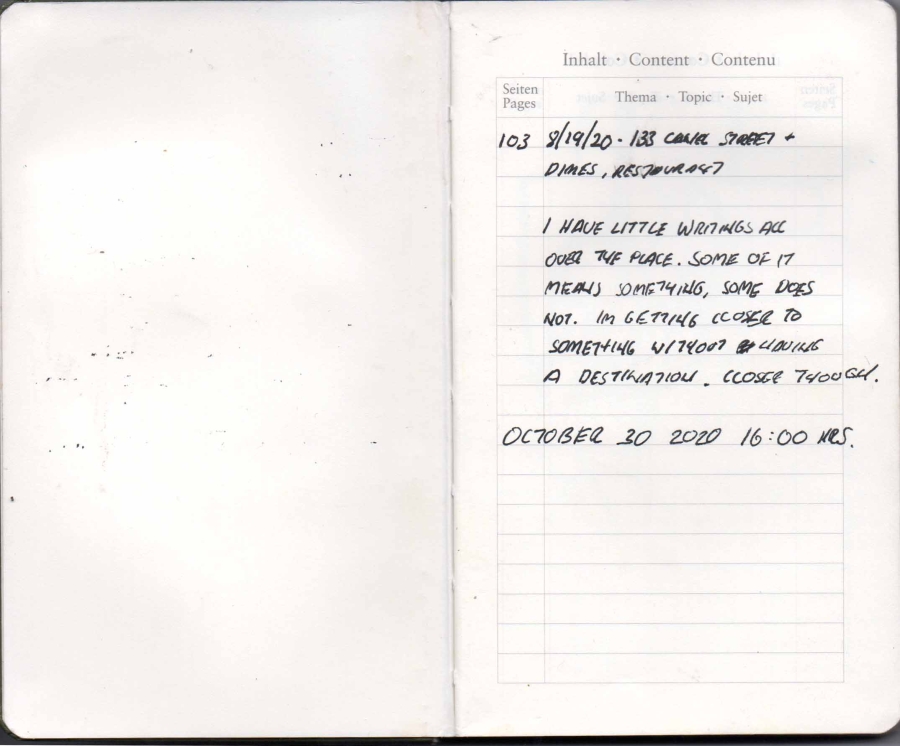 Inhalt · Content · Contenu
Seiten
Pages
Thema · Topic · Sujet
103 8/19/20 - 133 CANAL STREET +
DIMES, RESTAURANT
I HAVE LITTLE WRITINGS ALL
OVER THE PLACE. SOME OF IT
MEANS SOMETHING, SOME DOES
NOT. IM GETTING CLOSER TO
SOMETHING WITHOUT HAVING
A DESTINATION. CLOSER THOUGH.
OCTOBER 30 2020 16:00 HRS.